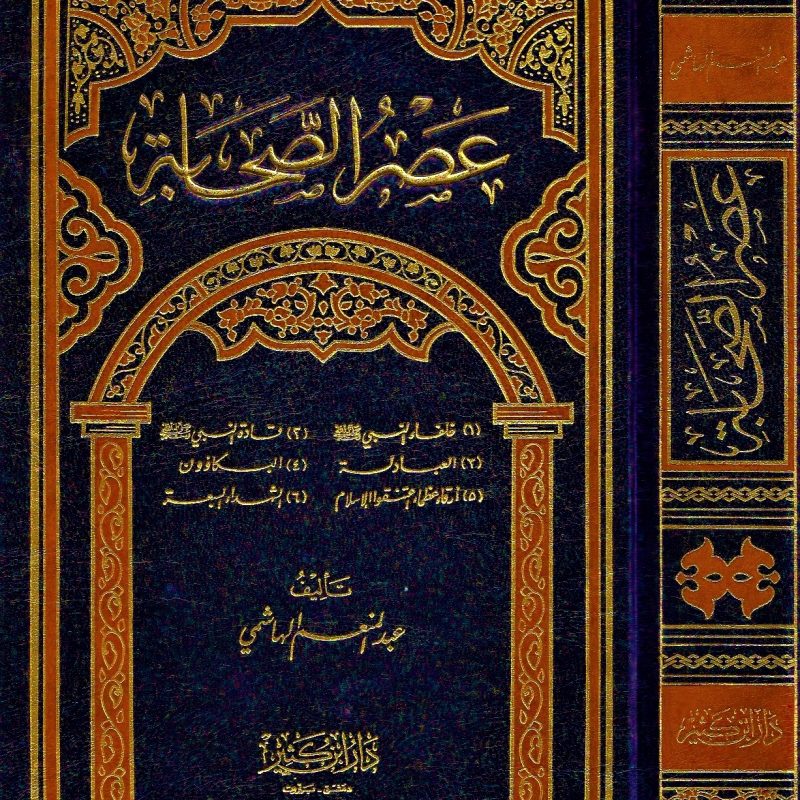 عَصْرُ الصَّحَابَةِ
(١) خلفاء النبي ﷺ (٢) قادة النبي ﷺ
(٣) العبادلة (٤) البكاؤون
(٥) أرقاء عظماء اعتنقوا الإسلام (٦) الشهداء السبعة
تَأليفُ
عبد المنعم الهاشمي
دَارُ ابن كَثِيْر
دمشق - بيروت
عبد المنعم الهاشمي
عَصْرُ الصَّحَابَةِ
دَارُ ابن كَثِيْر